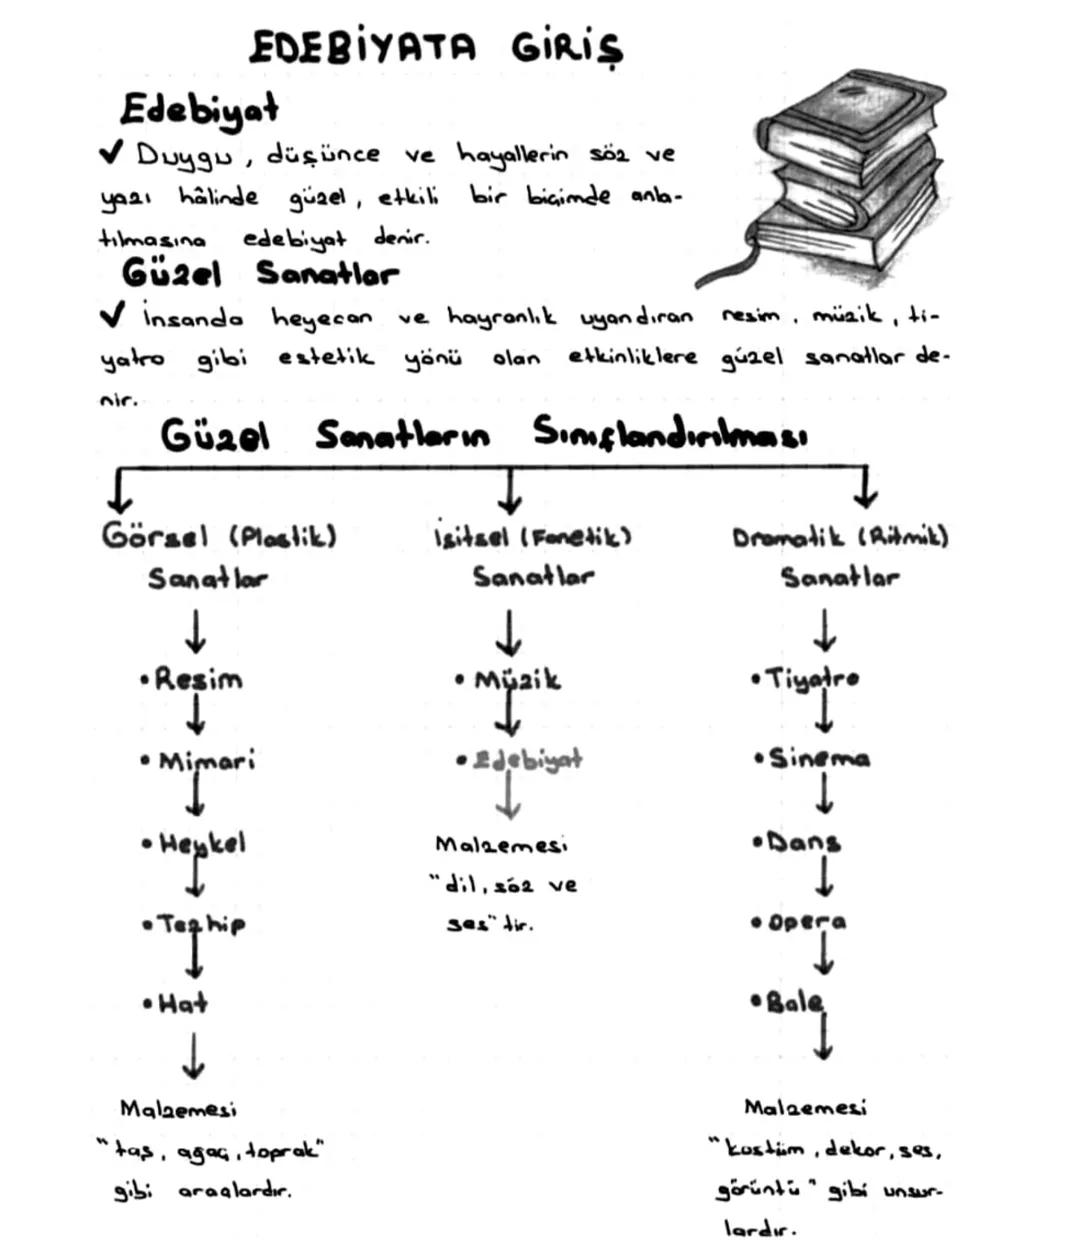 EDEBİYATA GİRİŞ
Edebiyat
✓ Duygu, düşünce ve hayallerin söz ve
yazı hâlinde güzel, etkili bir biçimde anla-
tılmasına edebiyat denir.
Güzel Sanatlar
✓ İnsanda heyecan ve hayranlık uyandıran resim, müzik, ti-
yatro gibi estetik yönü olan etkinliklere güzel sanatlar de-
nir.
Güzel Sanatların Sınıflandırılması
Görsel (Plastik)
Sanatlar
• Resim
• Mimari
• Heykel
• Tezhip
• Hat
Malzemesi
"taş, ağaç, toprak"
gibi araçlardır.
İşitsel (Fonetik)
Sanatlar
• Müzik
• Edebiyat
Malzemesi
"dil, söz ve
ses" tir.
Dramatik (Ritmik)
Sanatlar
• Tiyatro
• Sinema
• Dans
• Opera
• Bale
Malzemesi
"kostüm, dekor, ses,
görüntü" gibi unsur-
lardır.